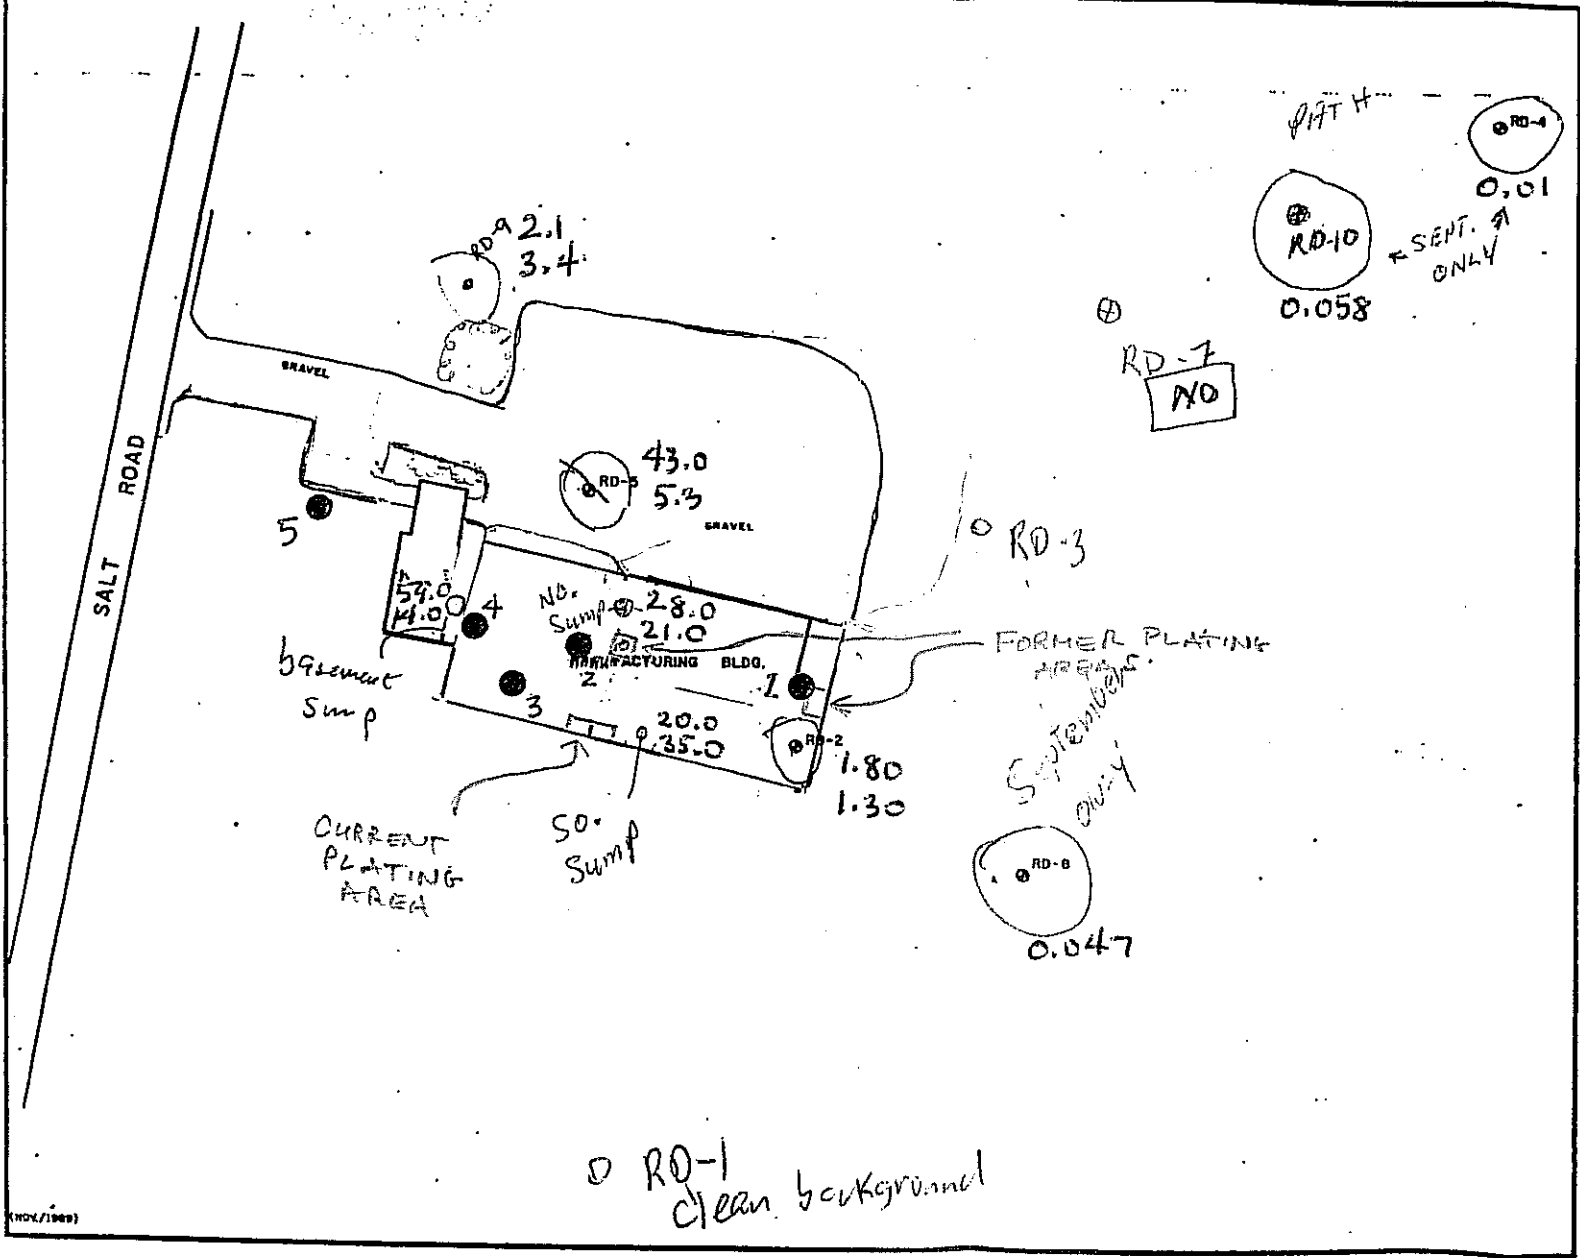 PATH
RD-4
0.01
RD-10
0.058
← SEPT.
ONLY
RD-9 2.1
3.4
RD-7
ND
GRAVEL
SALT ROAD
43.0
RD-5
5.3
GRAVEL
RD-3
5
14.0
4
NO.
Sump
28.0
21.0
MANUFACTURING BLDG.
2
3
1
FORMER PLATING
AREAS
basement
Sump
20.0
35.0
RD-2
1.80
1.30
September
only
CURRENT
PLATING
AREA
SO.
Sump
RD-8
0.047
RD-1
clean background
(NOV./1989)